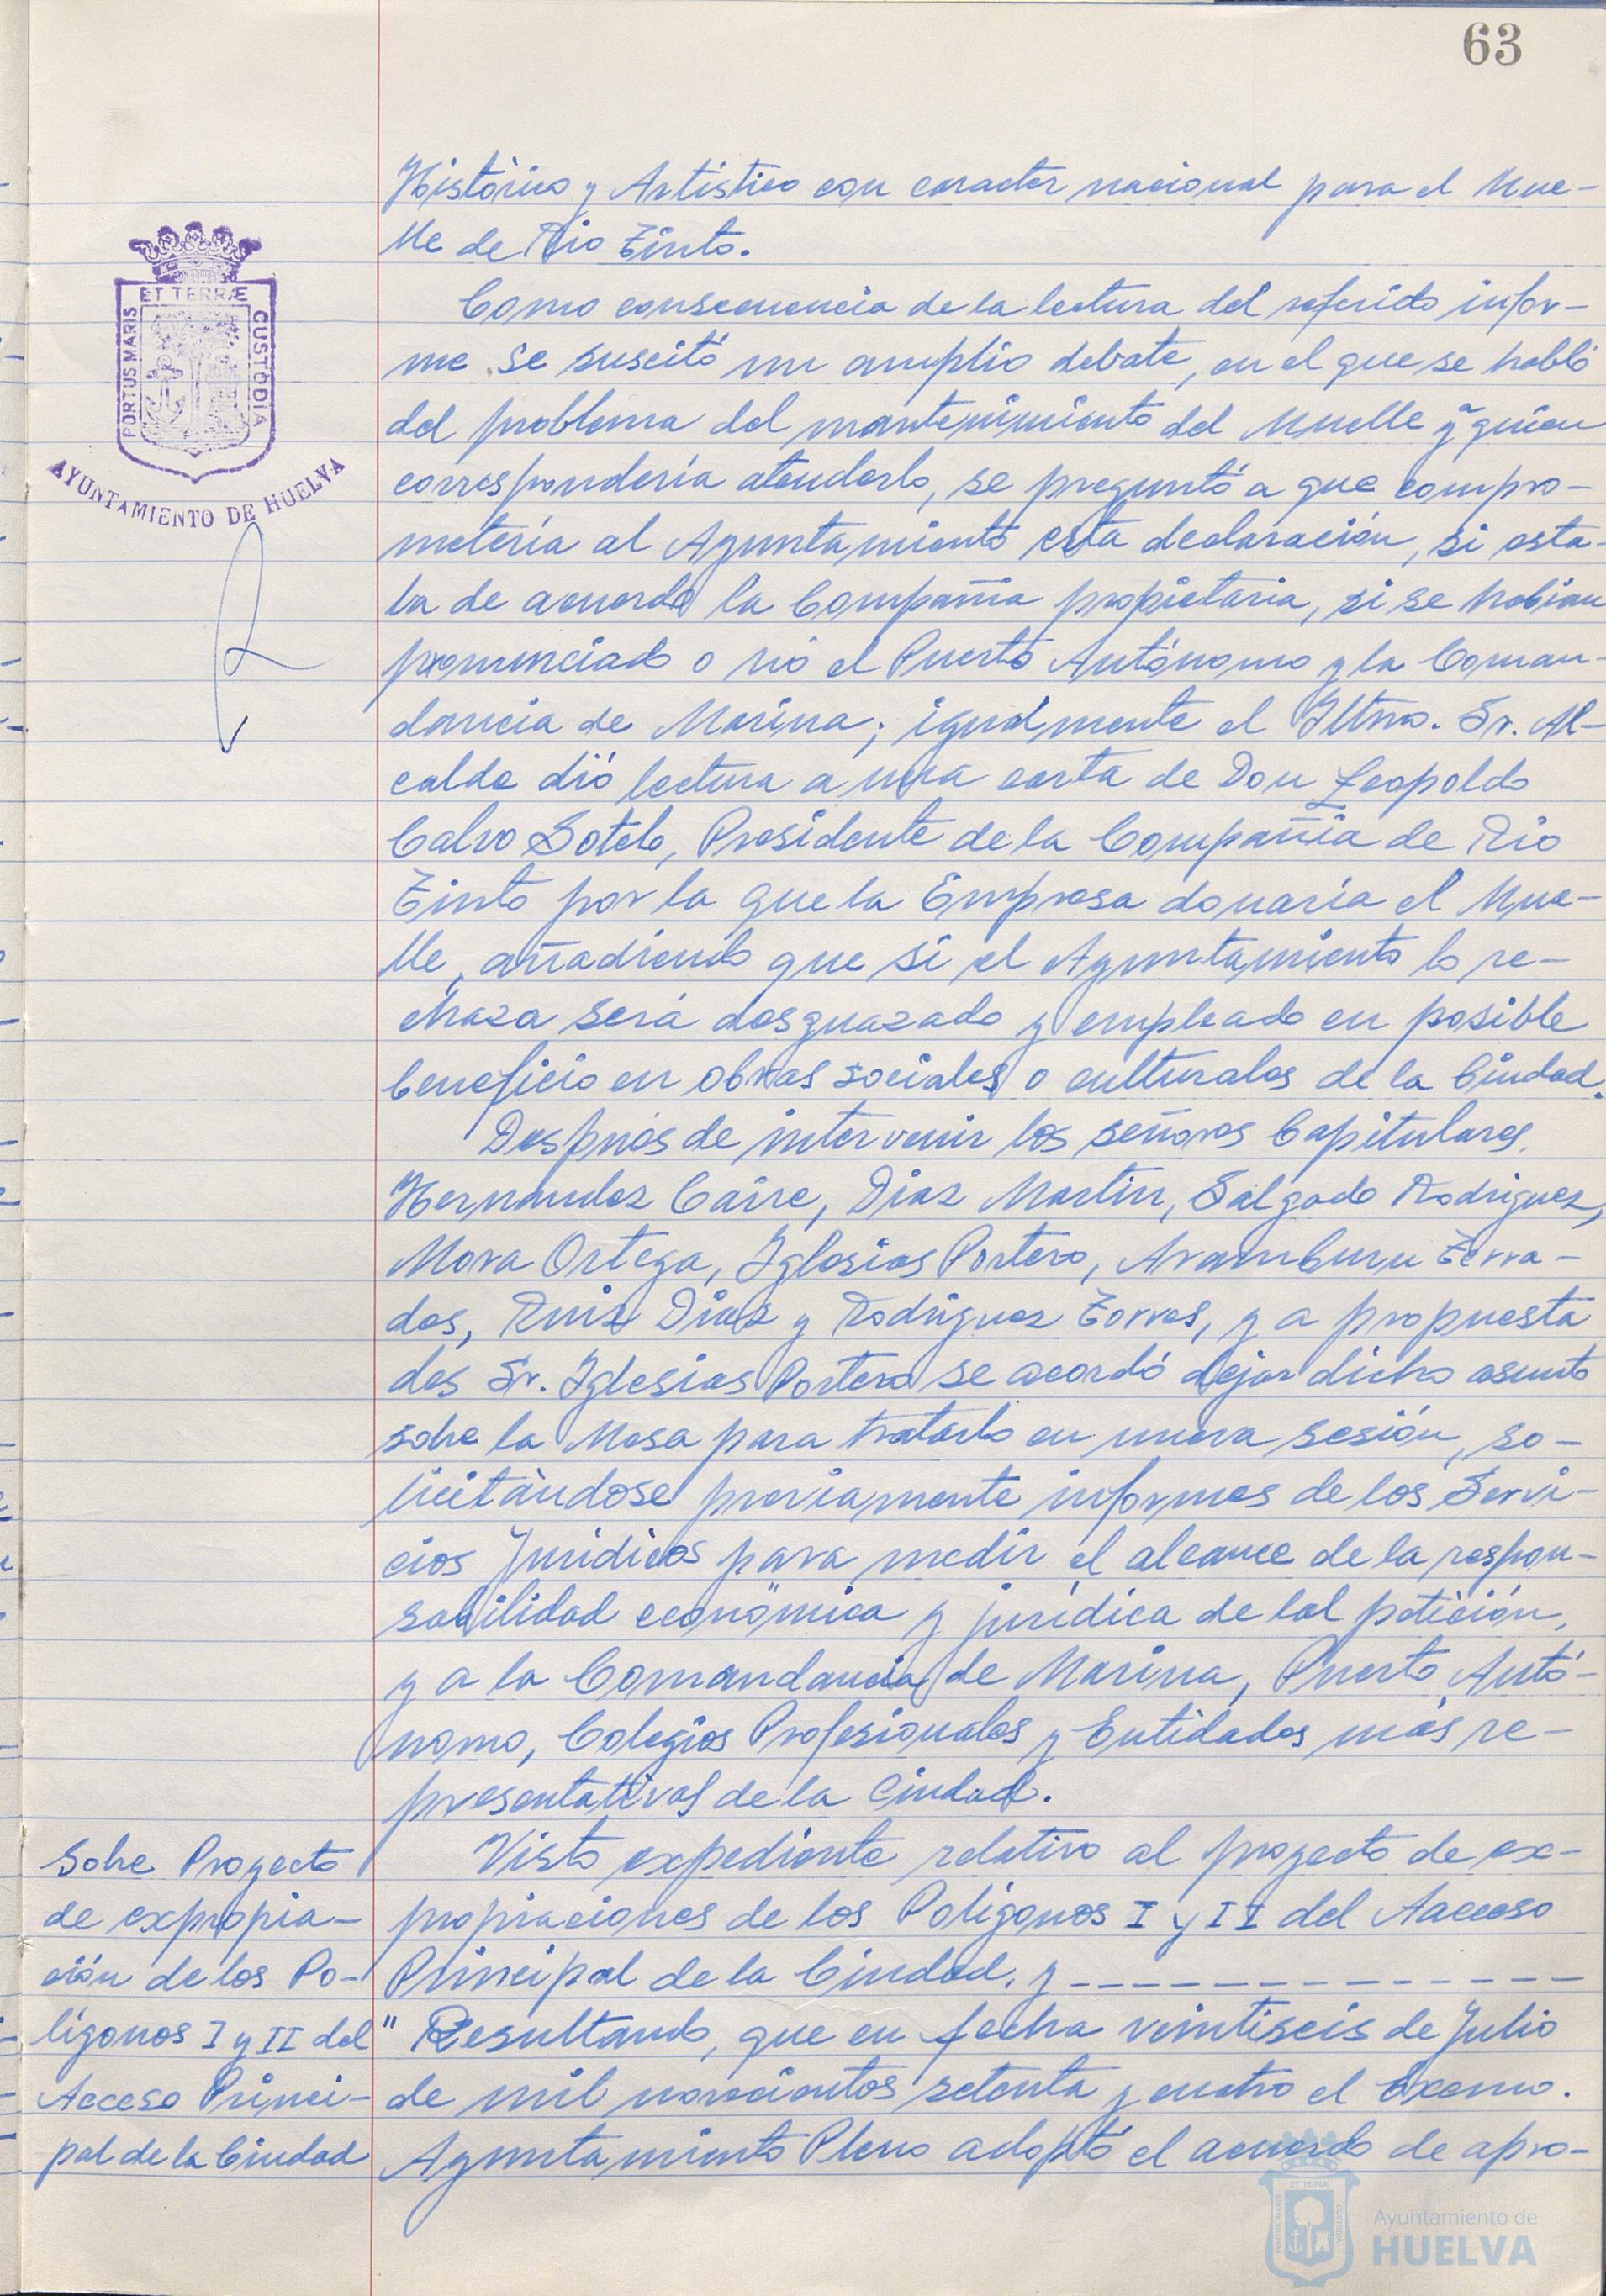 63
Histórico y Artístico con caracter nacional para el Mue-
lle de Rio Tinto.
ET TERRÆ
PORTUS MARIS
CUSTODIA
AYUNTAMIENTO DE HUELVA
Como consecuencia de la lectura del referido infor-
me se suscitó un amplio debate, en el que se habló
del problema del mantenimiento del Muelle y quien
correspondería atenderlo, se preguntó a que compro-
metería al Ayuntamiento esta declaración, si esta-
ba de acuerdo la Compañia propietaria, si se habian
pronunciado o nó el Puerto Autónomo y la Coman-
dancia de Marina; igualmente el Iltmo. Sr. Al-
calde dió lectura a una carta de Don Leopoldo
Calvo Sotelo, Presidente de la Compañia de Rio
Tinto por la que la Empresa donaría el Mue-
lle, añadiendo que si el Ayuntamiento lo re-
chaza será desguazado y empleado en posible
beneficio en obras sociales o culturales de la Ciudad.
Después de intervenir los señores Capitulares,
Hernandez Caire, Diaz Martin, Salgado Rodriguez,
Mora Ortega, Iglesias Portero, Aramburu Terra-
dos, Ruiz Diaz y Rodriguez Torres, y a propuesta
des Sr. Iglesias Portero se acordó dejar dicho asunto
sobre la Mesa para tratarlo en nueva sesión, so-
licitándose previamente informes de los Servi-
cios Jurídicos para medir el alcance de la respon-
sabilidad económica y jurídica de tal petición,
y a la Comandancia de Marina, Puerto Autó-
nomo, Colegios Profesionales y Entidades mas re-
presentativas de la Ciudad.
Sobre Proyecto
de expropia-
ción de los Po-
lígonos I y II del
Acceso Princi-
pal de la Ciudad
Visto expediente relativo al proyecto de ex-
propiaciones de los Polígonos I y II del Aacceso
Principal de la Ciudad, y _ _ _ _ _ _ _ _ _ _ _ _ _
" Resultando, que en fecha veintiseis de Julio
de mil novecientos setenta y cuatro el Excmo.
Ayuntamiento Pleno adoptó el acuerdo de apro-
Ayuntamiento de
HUELVA